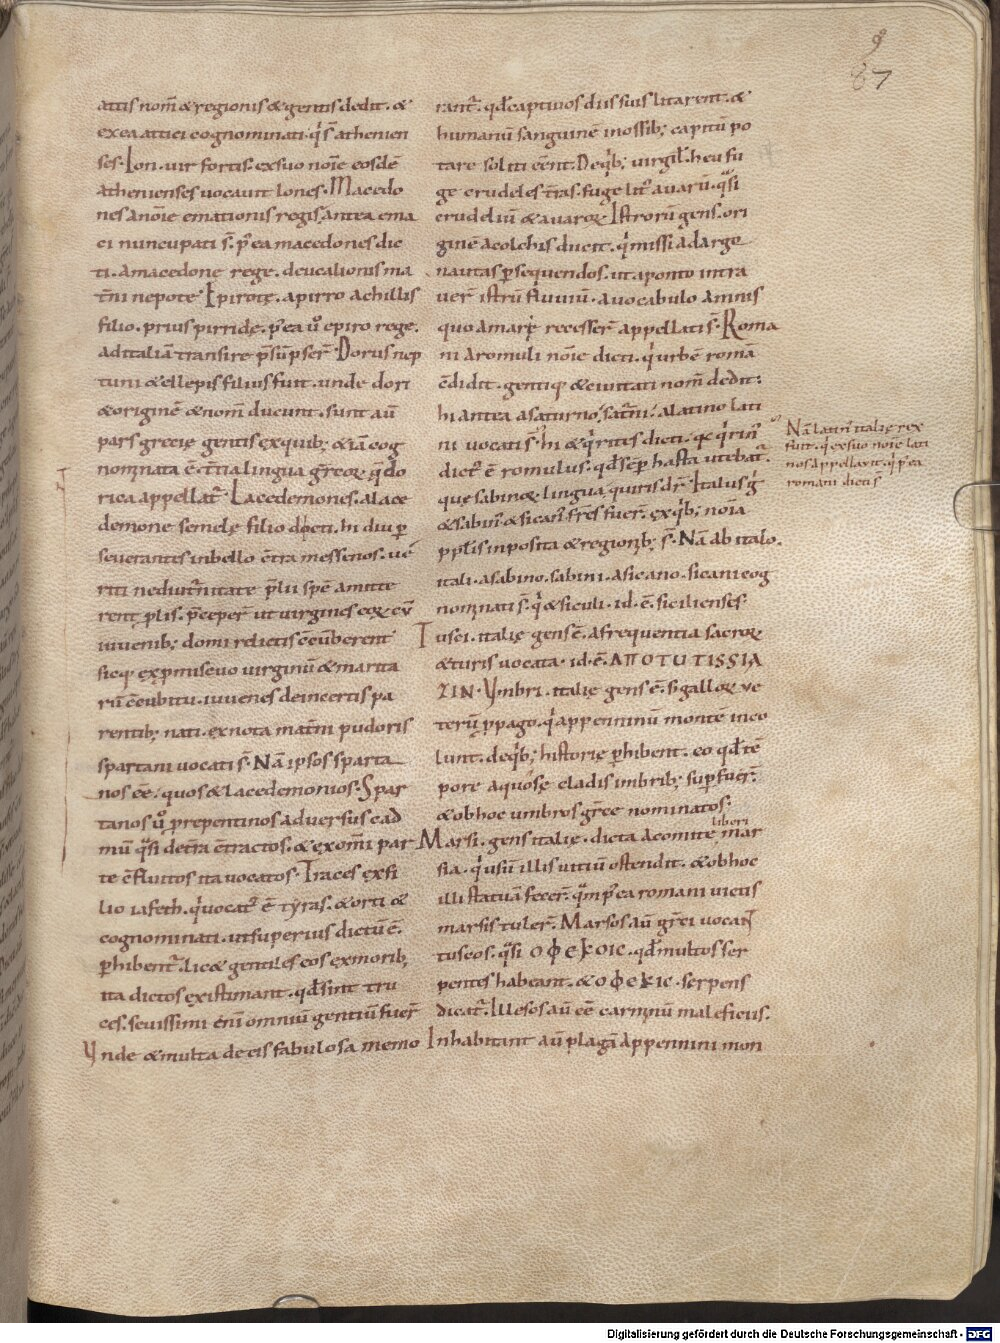 9
87
attis nom̄ & regionis & gentis dedit. &
ex ea attici cognominati. q̇ s̄ athenien
ses. Ion. uir fortis. ex suo noīe eosdē
athenienses uocauit Iones. Macedo
nes a noīe emationis regis. antea ema
ci nuncupati s̄. p̄ ea macedones dic
ti. a macedone rege. deucalionis ma
t̄ni nepote. Epirotę. a pirro achillis
filio. prius pirridę. p̄ ea ů epiro rege.
ad italiā transire p̄sūpser̄. Dorus nep
tuni & ellepis filius fuit. unde dori
& originē & nom̄ ducunt. sunt aū
pars gręcię gentis ex quib; & iā cog
nomnata ē. t̄tia lingua gr̄ecoꝝ q̇ do
rica appellat̄. Lacedemones. a lace
demone semelę filio dicti. hi diu ꝑ
seuerantes in bello c̄tra messenos. ue
riti ne diut̄nitate p̄lii spē amitte
rent ꝓlis. p̄ceper̄ ut uirgines eoꝝ cū
iuuenib; domi relictis c̄cūberent
sicq; ex ꝓmiscuo uirginū & marita
rū c̄cubitu. iuuenes de incertis pa
rentib; nati. ex nota mat̄ni pudoris
spartani uocati s̄. Nā ipsos sparta
nos ēē. quos & lacedemonios. Spar
tanos ů
mū q̇si det̄ra c̄tractos. & ex om̄i par
te c̄fluitos ita uocatos. Traces ex fi
lio iafeth. q̇ uocat̄ ē tyras. & orti &
cognominati. ut superius dictū ē.
ꝑhibent̄. lic& gentiles eos ex morib;
ita dictos existimant. qđ sint tru
ces. seuissimi eni omniū gentiū fuer̄
Vnde & multa de eis fabulosa memo
rant̄. qđ captiuos diis suis litarent. &
humanū sanguinē in ossib; capitū po
tare soliti eēnt. De q̇b; uirgil̄. heu fu
ge crudeles t̄ras. fuge lit̄ auarū. q̇si
crudeliū & auaroꝝ. Istrorū gens. ori
ginē a colchis ducit. q̇ missi ad argo
nautas ꝑsequendos. ut a ponto intra
uer̄ istrū fluuiū. a uocabulo amnis
quo a mare recesser̄ appellati s̄. Roma
ni a romuli noīe dicti. q̇ urbē romā
c̄didit. gentiq; & ciuitati nom̄ dedit.
hi antea a saturno, sat̄ni. a latino lati
ni uocati s̄. hi & q̇rites dicti.
dict̄ ē romulus. qđ sēꝑ hasta utebat̄
quę sabinoꝝ lingua, quiris dr̄. Italus q̇
& sabin̄ & sican̄ fr̄es fuer̄. ex q̇b; noīa
ppl̄is inposita & regionib; s̄. Nā ab italo.
itali. a sabino. sabini. a sicano. sicani cog
nomnati s̄. q̇ & siculi. id. ē. sicilienses.
Tusci. italię gens ē. a frequentia sacroꝝ
& turis uocata. id. ē. ΑΠΟΤUΤΙSSΙΑ
ΖΙΝ. Vmbri. italię gens ē. s; galloꝝ ue
terū ꝓpago. q̇ appenninū montē inco
lunt. de q̇b; historię ꝑhibent. eo qđ tē
pore aquosę cladis imbrib; sup̄fuer̄.
& ob hoc umbros gr̄ece nominatos.
liberi
Marsi. gens italię. dicta a comite mar
sia. q̇ usū illis uitiū ostendit. & ob hoc
illi statuā fecer̄. quā p̄ ea romani uictis
marsis tuler̄. Marsos aū gr̄ei uocan̄
tuscos. q̇si ΟΦΕΚΟΙC. qđ multos ser
pentes habeant. & ΟΦΕΚΙC. serpens
dicat̄. Illesos aū eē carmnū maleficiis.
Inhabitant aū plagā appennini mon
Nā latin̄ italię rex
fuit. q̇ ex suo noīe lati
nos appellauit. q̇ p̄ ea
romani dicti s̄